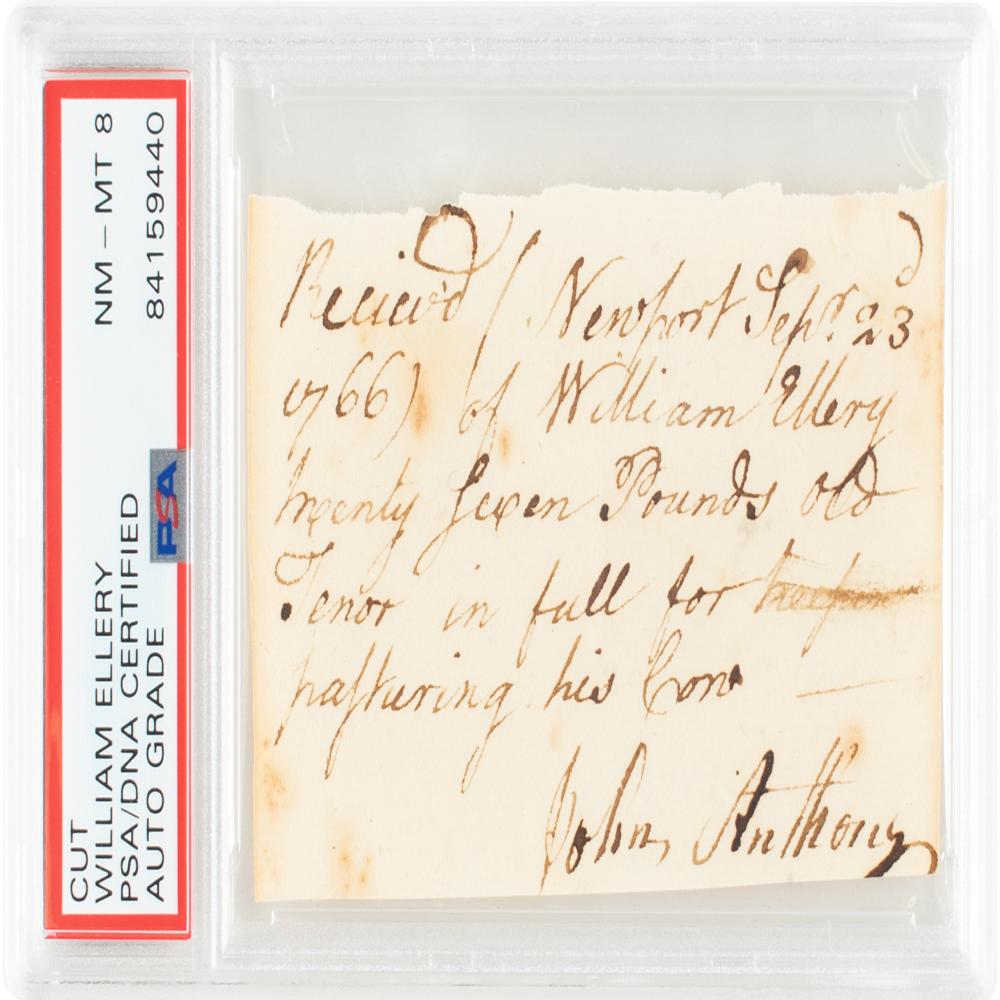 CUT
WILLIAM ELLERY
PSA/DNA CERTIFIED
AUTO GRADE
NM – MT 8
84159440
PSA
Reciev'd (Newport Sepr. 23
1766) of William Ellery
twenty Seven Pounds old
Tenor in full for
pasturing his Cow
John Anthony